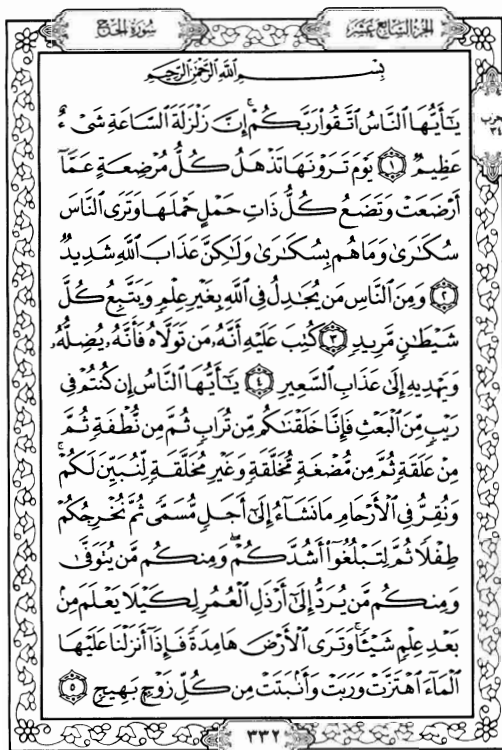 الجزء السابع عشر
سورة الحج
بسم الله الرحمن الرحيم
يَٰٓأَيُّهَا ٱلنَّاسُ ٱتَّقُوا۟ رَبَّكُمْ ۚ إِنَّ زَلْزَلَةَ ٱلسَّاعَةِ شَىْءٌ
عَظِيمٌ ١ يَوْمَ تَرَوْنَهَا تَذْهَلُ كُلُّ مُرْضِعَةٍ عَمَّآ
أَرْضَعَتْ وَتَضَعُ كُلُّ ذَاتِ حَمْلٍ حَمْلَهَا وَتَرَى ٱلنَّاسَ
سُكَٰرَىٰ وَمَا هُم بِسُكَٰرَىٰ وَلَٰكِنَّ عَذَابَ ٱللَّهِ شَدِيدٌ
٢ وَمِنَ ٱلنَّاسِ مَن يُجَٰدِلُ فِى ٱللَّهِ بِغَيْرِ عِلْمٍ وَيَتَّبِعُ كُلَّ
شَيْطَٰنٍ مَّرِيدٍ ٣ كُتِبَ عَلَيْهِ أَنَّهُۥ مَن تَوَلَّاهُ فَأَنَّهُۥ يُضِلُّهُۥ
وَيَهْدِيهِ إِلَىٰ عَذَابِ ٱلسَّعِيرِ ٤ يَٰٓأَيُّهَا ٱلنَّاسُ إِن كُنتُمْ فِى
رَيْبٍ مِّنَ ٱلْبَعْثِ فَإِنَّا خَلَقْنَٰكُم مِّن تُرَابٍ ثُمَّ مِن نُّطْفَةٍ ثُمَّ
مِنْ عَلَقَةٍ ثُمَّ مِن مُّضْغَةٍ مُّخَلَّقَةٍ وَغَيْرِ مُخَلَّقَةٍ لِّنُبَيِّنَ لَكُمْ ۚ
وَنُقِرُّ فِى ٱلْأَرْحَامِ مَا نَشَآءُ إِلَىٰٓ أَجَلٍ مُّسَمًّى ثُمَّ نُخْرِجُكُمْ
طِفْلًا ثُمَّ لِتَبْلُغُوٓا۟ أَشُدَّكُمْ ۖ وَمِنكُم مَّن يُتَوَفَّىٰ
وَمِنكُم مَّن يُرَدُّ إِلَىٰٓ أَرْذَلِ ٱلْعُمُرِ لِكَيْلَا يَعْلَمَ مِنۢ
بَعْدِ عِلْمٍ شَيْـًٔا ۚ وَتَرَى ٱلْأَرْضَ هَامِدَةً فَإِذَآ أَنزَلْنَا عَلَيْهَا
ٱلْمَآءَ ٱهْتَزَّتْ وَرَبَتْ وَأَنۢبَتَتْ مِن كُلِّ زَوْجٍۭ بَهِيجٍ ٥
٣٣٢